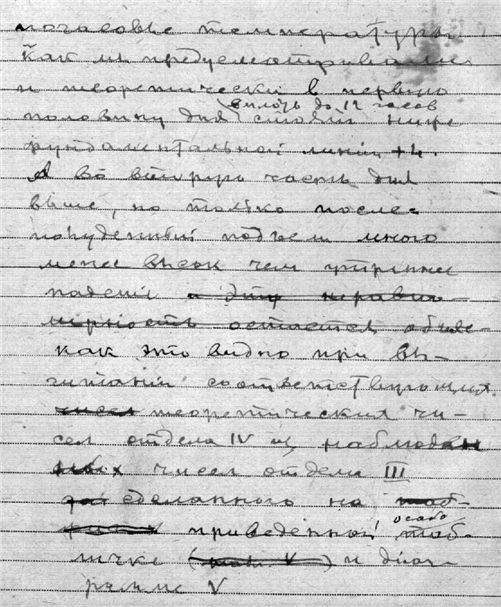 почасовые температуры
как мы предусмотривали
и теоретически в первую
вплоть до 12 часов
половину дня стояли ниже
фундаментальной линии +4.
А во вторую часть дня
выше, но только после
полуденный подъем много
мене высок чем утренне
падение а эту неравно-
мерность остается объяс-
как это видно при вы-
читании соответствующих
чисел теоретических чи-
сел отдела IV из наблюдан
ных чисел отдела III
сделанного на таб-
особо
приведенной таб-
личке (таб. V) и диаг-
рамме V